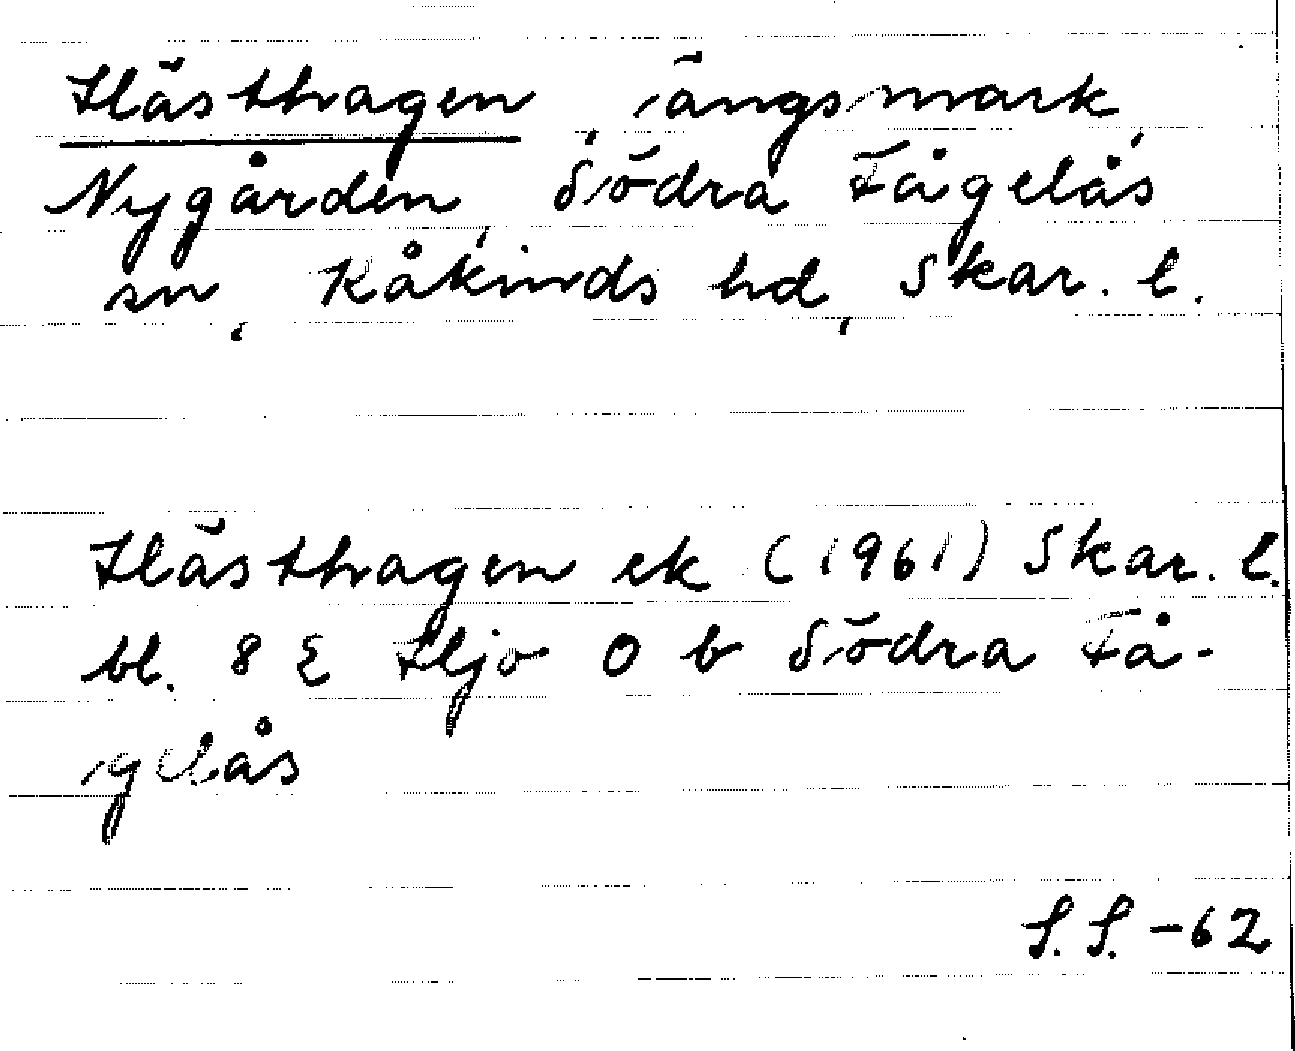 Hästhagen, ängsmark,
Nygården, Södra Fågelås
sn, Kåkinds hd, Skar. l.
Hästhagen ek (1961) Skar. l.
bl. 8 E Hjo 0 b Södra Få-
gelås
S.S. -62